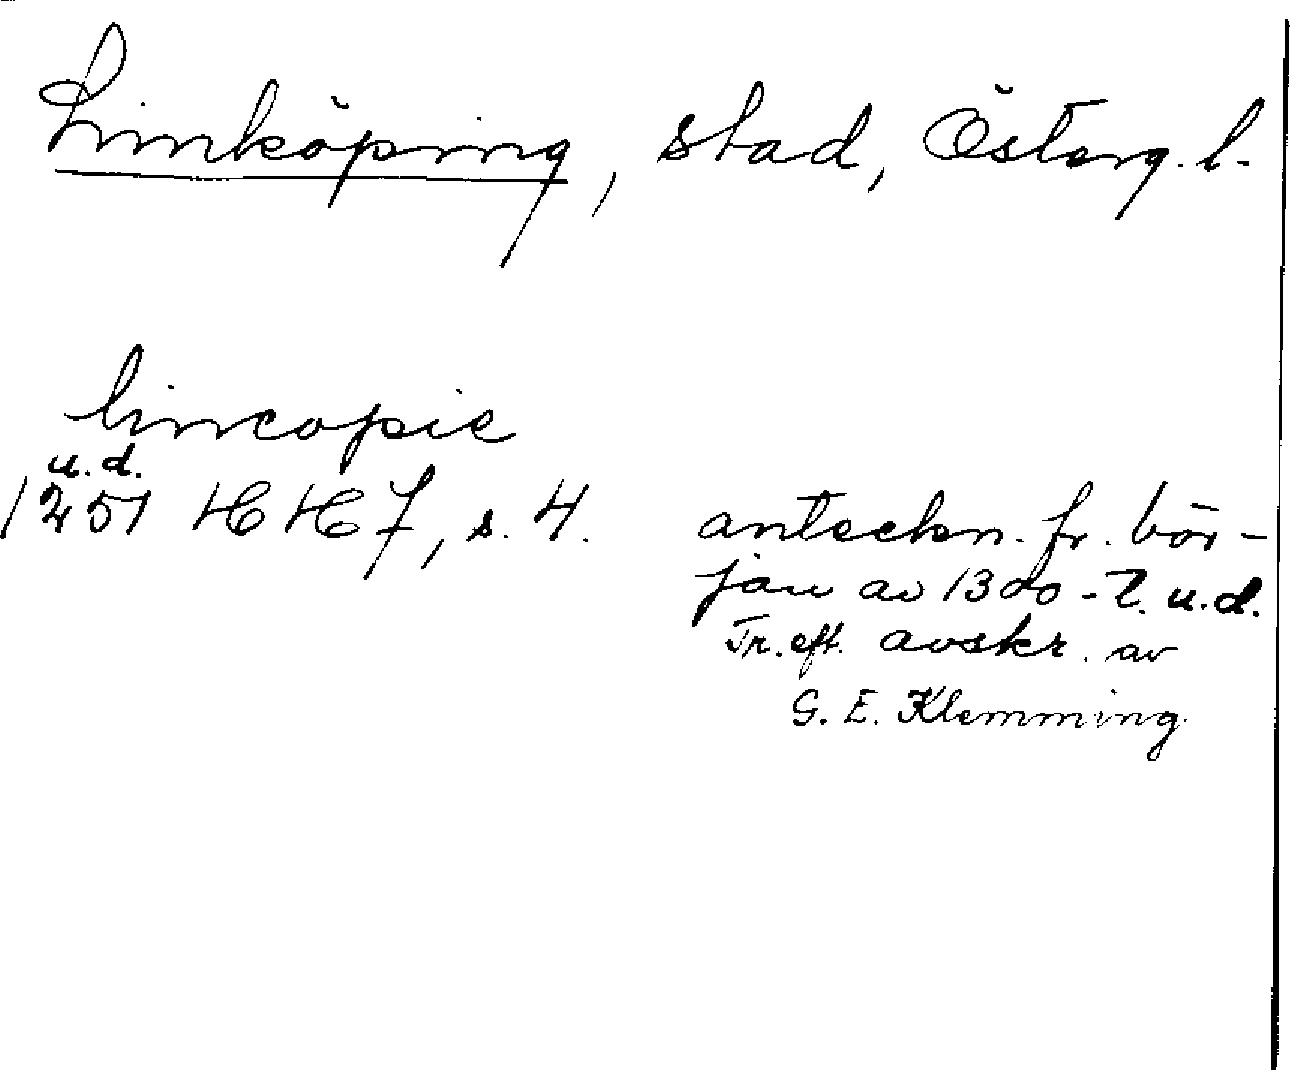 Linköping, stad, Österg. l.
lincopie
u. d.
1251 HH 7, s. 4. anteckn. fr. bör-
jan av 1300-t. u.d.
Tr. eft. avskr. av
G. E. Klemming